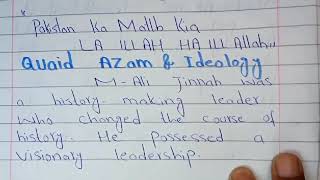 Pakistan Ka Matlb Kia
LA ILLAH HA ILL Allah,,
Quaid AZam & Ideology
M-Ali Jinnah was
a history making leader
who changed the course of
history. He possessed a
visionary leadership.